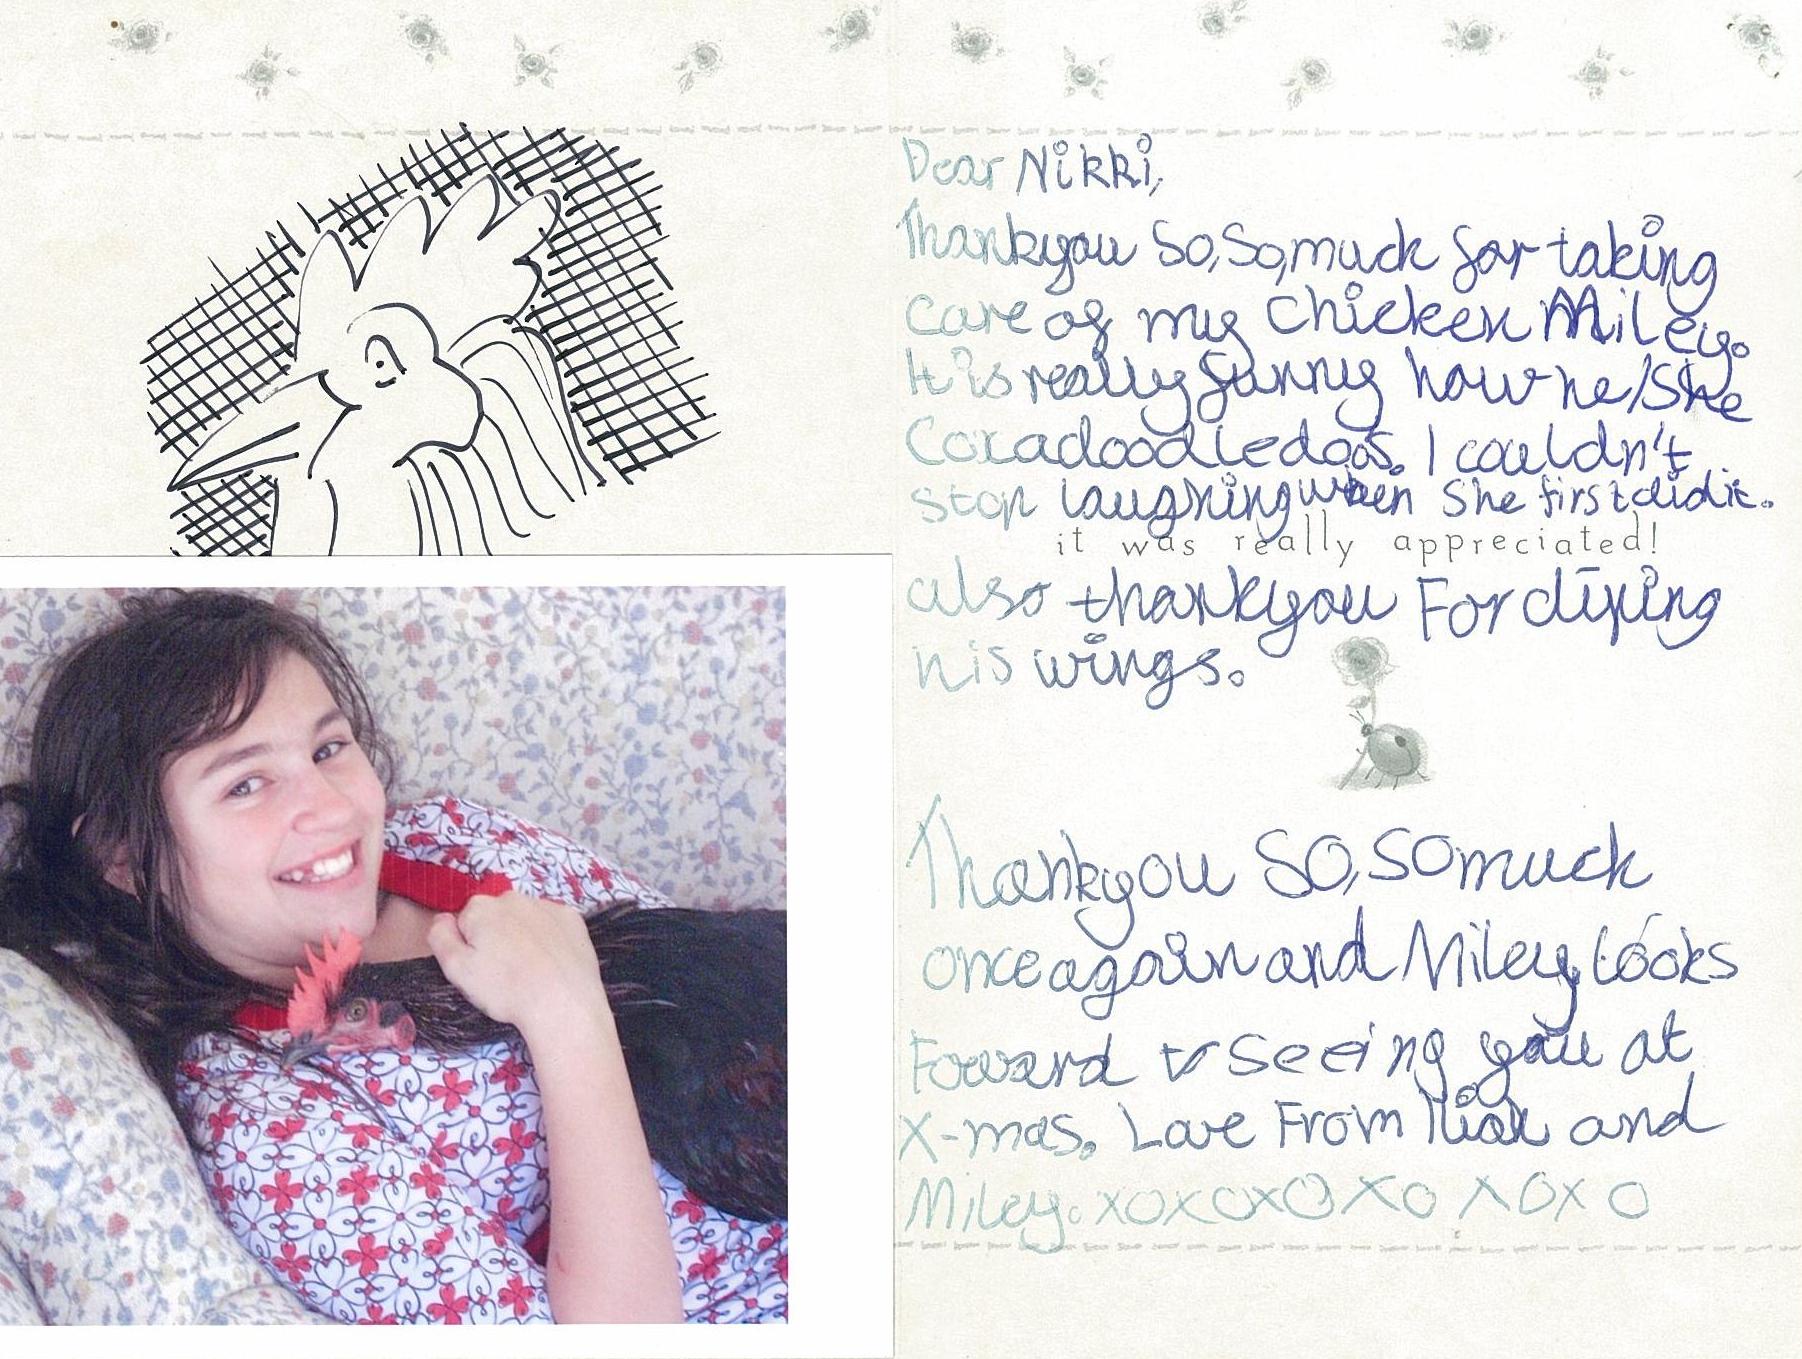 Dear Nikki,
Thankyou So, So, much for taking
care of my chicken Miley.
It is really funny how he/She
Coxadoodledoos. I couldn't
stop laughing when She first did it.
it was really appreciated!
also thankyou For
his wings.
Thankyou SO, SO much
once again and Miley looks
Foward to Seeing you at
X-mas. Love From and
Miley. xoxoxoxoxoxo